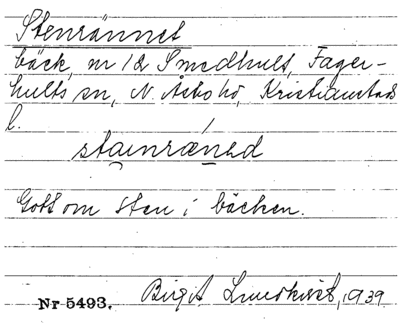 Stenrännet
bäck, nr 12 Smedhult, Fager-
hults sn, N. Åsbo hd, Kristianstads
l.
stainræned
Gott om sten i bäcken.
Nr 5493. Birgit Lundkvist, 1939